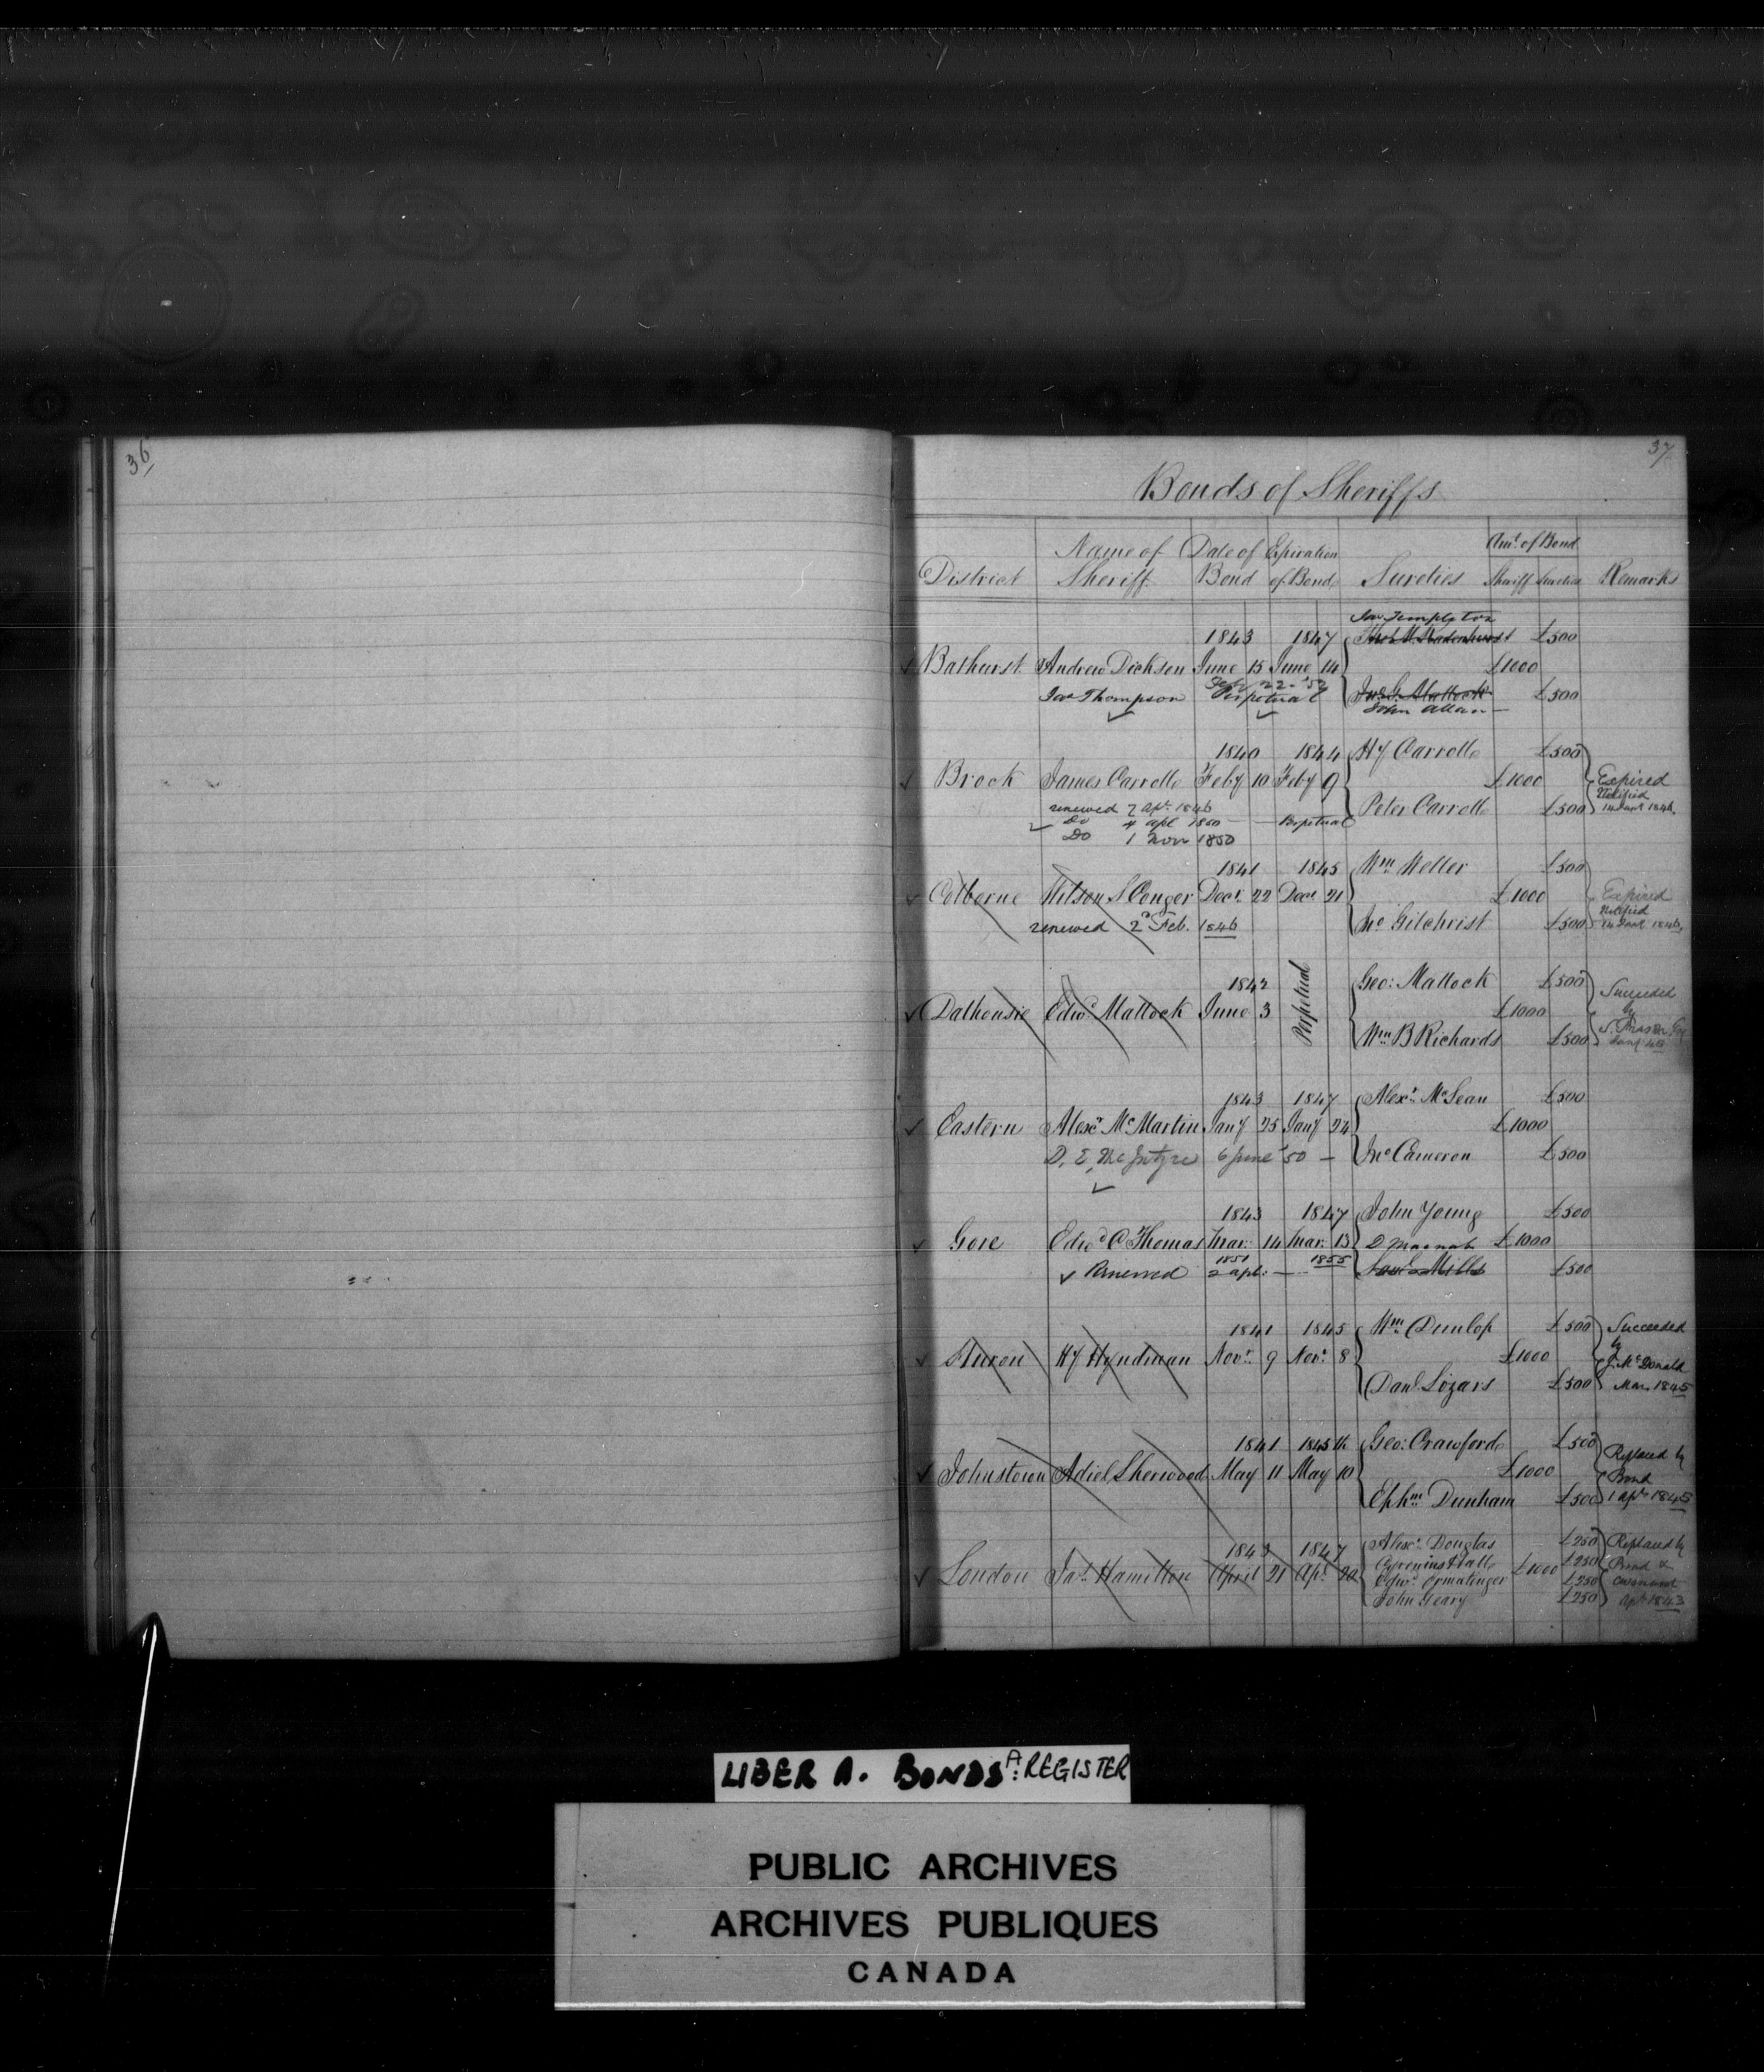 36
37
Bonds of Sheriffs
Amt. of Bond
Name of Date of Expiration
District Sheriff Bond of Bond Sureties Sheriff Sureties Remarks
Jas Templeton
1843 1847 £500
Bathurst Andrew Dickson June 15 June 14 £1000
Feby 22 - '52
Jas Thompson Perpetual £500
John Allan
1840 1844 Hy Carroll £500
Brock James Carroll Feby 10 Feby 9 £1000 Expired
Notified
renewed 7 Apl. 1846 Peter Carroll £500 14 Jany 1846.
Do 4 apl 1850 — Perpetual
Do 1 Nov 1850
1841 1845 Wm. Weller £500
Colborne Wilson S Conger Decr. 22 Decr. 21 £1000 Expired
Notified
renewed 2d Feb. 1846 Jno. Gilchrist £500 14 Jany 1846.
1842 Perpetual Geo: Mallock £500 Succeeded
Dalhousie Edwd. Mallock June 3 £1000 by
Wm. B Richards £500 S. Fraser
1843 1847 Alexr. McLean £500
Eastern Alexr. McMartin Jany 25 Jany 24 £1000
D. E. McIntyre 6 June '50 — Jno Cameron £500
1843 1847 John Young £500
Gore Edwd. C Thomas Mar: 14 Mar: 13 D Macnab £1000
1851 1855
Renewed 2 Apl: — Saml. Mills £500
1841 1845 Wm. Dunlop £500 Succeeded
by
Huron Hy Hyndman Novr. 9 Novr. 8 £1000 J. McDonald
Danl. Lizars £500 Mar. 1845
1841 1845 Geo: Crawford £500 Replaced by
Johnstown Adiel Sherwood May 11 May 10 £1000 Bond
Ephm. Dunham £500 1 Apl. 1845
1843 1847 Alexr. Douglas £250 Replaced by
London Jas. Hamilton April 21 Apl. 20 £1000 £250 Bond &
Edwd. Ermatinger £250 Covenant
John Geary £250 Apl. 1843
LIBER A. BONDS A: REGISTER
PUBLIC ARCHIVES
ARCHIVES PUBLIQUES
CANADA